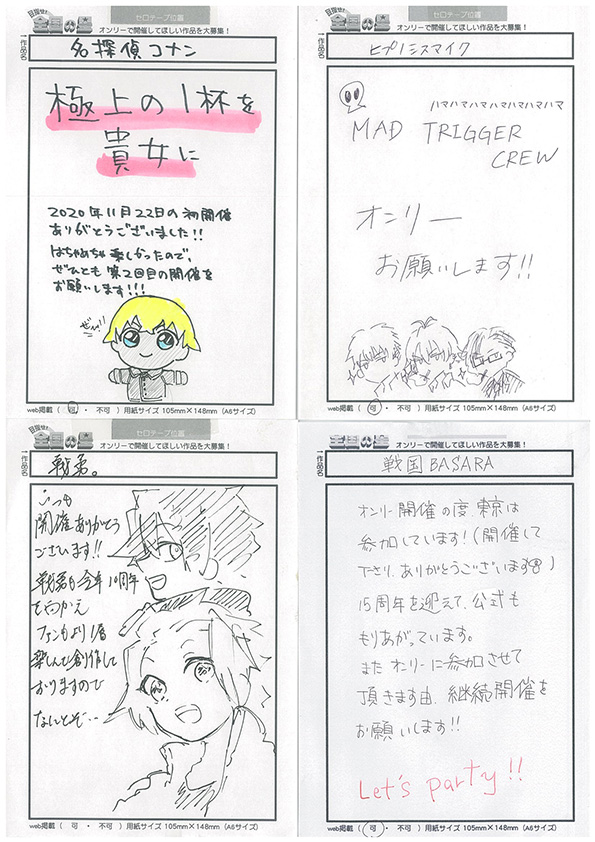 セロテープ位置
目指せ！
全国の道
オンリーで開催してほしい作品を大募集！
1作品名
名探偵コナン
極上の1杯を
貴女に
2020年11月22日の初開催
ありがとうございました!!
はちゃめちゃ楽しかったので、
ぜひとも第2回目の開催を
お願いします!!!
ぜひ!!
web掲載（ 可 ・ 不可 ）用紙サイズ 105mm×148mm（A6サイズ）
セロテープ位置
オンリーで開催してほしい作品を大募集！
1作品名
ヒプノシスマイク
ハマハマハマハマハマハマハマ
MAD TRIGGER
CREW
オンリー
お願いします!!
web掲載（ 可 ・ 不可 ）用紙サイズ 105mm×148mm（A6サイズ）
セロテープ位置
目指せ！
オンリーで開催してほしい作品を大募集！
1作品名
戦勇。
いつも
開催ありがとう
ございます!!
戦勇も今年10周年
をむかえ
ファンもより1層
楽しんで創作して
おりますので
なにとぞ…
web掲載（ 可 ・ 不可 ）用紙サイズ 105mm×148mm（A6サイズ）
セロテープ位置
オンリーで開催してほしい作品を大募集！
1作品名
戦国BASARA
オンリー開催の度、東京は
参加しています！（開催して
下さり、ありがとうございます）
15周年を迎えて、公式も
もりあがっています。
また オンリーに参加させて
頂きます由、継続開催を
お願いします!!
Let's party!!
web掲載（ 可 ・ 不可 ）用紙サイズ 105mm×148mm（A6サイズ）